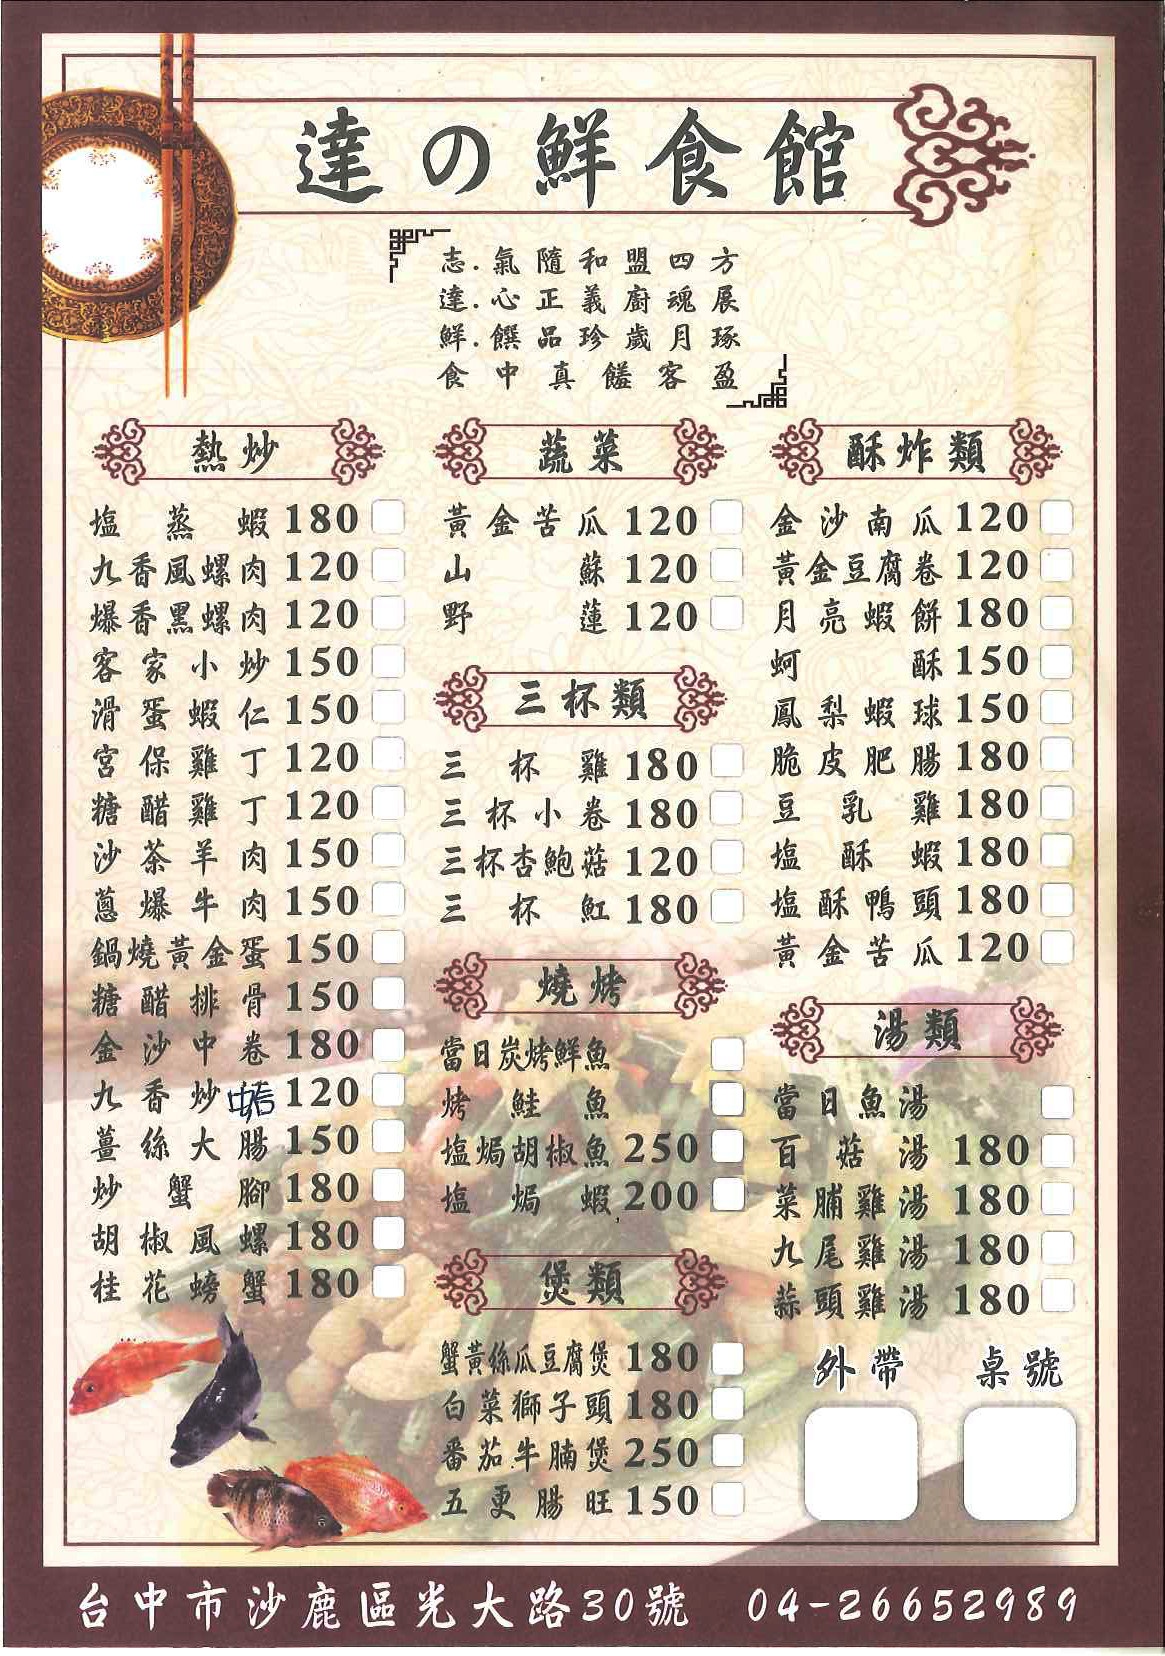 達の鮮食館
志.氣隨和盟四方
達.心正義廚魂展
鮮.饌品珍歲月琢
食中真饈客盈
熱炒
塩蒸蝦180
九香風螺肉120
爆香黑螺肉120
客家小炒150
滑蛋蝦仁150
宮保雞丁120
糖醋雞丁120
沙茶羊肉150
蔥爆牛肉150
鍋燒黃金蛋150
糖醋排骨150
金沙中卷180
九香炒 120
薑絲大腸150
炒蟹腳180
胡椒風螺180
桂花螃蟹180
蔬菜
黃金苦瓜120
山蘇120
野蓮120
三杯類
三杯雞180
三杯小卷180
三杯杏鮑菇120
三杯魟180
燒烤
當日炭烤鮮魚
烤鮭魚
塩焗胡椒魚250
塩焗蝦200
煲類
蟹黃絲瓜豆腐煲180
白菜獅子頭180
番茄牛腩煲250
五更腸旺150
酥炸類
金沙南瓜120
黃金豆腐卷120
月亮蝦餅180
蚵酥150
鳳梨蝦球150
脆皮肥腸180
豆乳雞180
塩酥蝦180
塩酥鴨頭180
黃金苦瓜120
湯類
當日魚湯
百菇湯180
菜脯雞湯180
九尾雞湯180
蒜頭雞湯180
外帶 桌號
台中市沙鹿區光大路30號 04-26652989